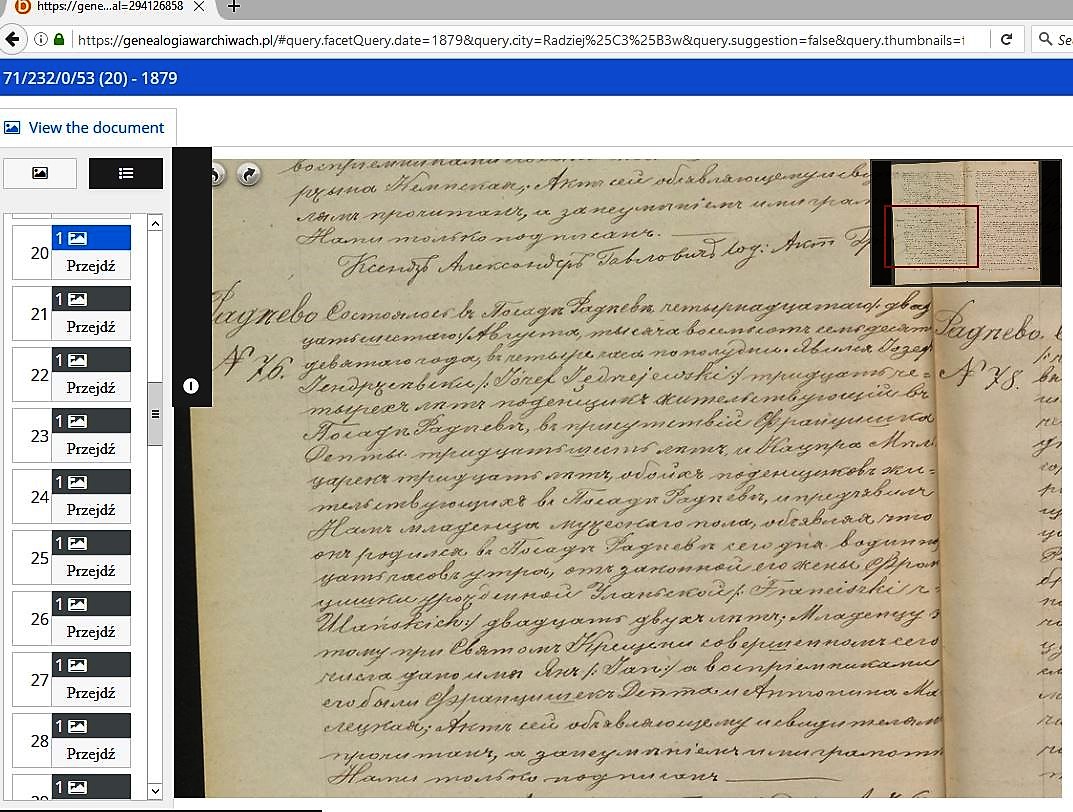 https://gene...al=294126858
https://genealogiawarchiwach.pl/#query.facetQuery.date=1879&query.city=Radziej%25C3%25B3w&query.suggestion=false&query.thumbnails=
71/232/0/53 (20) - 1879
View the document
20 1 Przejdź
21 1 Przejdź
22 1 Przejdź
23 1 Przejdź
24 1 Przejdź
25 1 Przejdź
26 1 Przejdź
27 1 Przejdź
28 1 Przejdź
1
Актъ сей объявляющему и
лямъ прочитанъ, а за неумѣніемъ имъ грам
Нами только подписанъ.
Ксендзъ Александръ Павловичъ Актъ
Радѣево Состоялось въ Посадѣ Радѣевѣ, четырнадцатаго /: два
цать шестаго :/ Августа, тысяча восемьсотъ семьдесятъ
№ 76. девятаго года, въ четыре часа пополудни. Явился Іозеф
Ендржеевскій /: Józef Jędrzejewski :/ тридцать че=
тырехъ лѣтъ поденщикъ жительствующій въ
Посадѣ Радѣевѣ, въ присутствіи Францишка
Депты тридцать лѣтъ, и Кацпра
тридцать лѣтъ, обоихъ поденщиковъ жи=
тельствующихъ въ Посадѣ Радѣевѣ, и предъявилъ
Намъ младенца мужескаго пола, объявляя что
онъ родился въ Посадѣ Радѣевѣ сего дня в одинна
цать часовъ утра, отъ законной его жены Фран
цишки урожденной Уланьской /: Franciszki z
Ulańskich :/ двадцать двухъ лѣтъ; Младенцу э
тому при Святомъ Крещеніи совершенномъ сего
числа дано имя Янъ /: Jan :/ а воспріемниками
его были Францишекъ Депта и Антонина Ма
лецкая; Актъ сей объявляющему и свидѣтелямъ
прочитанъ, а за неумѣніемъ ими грамоты
Нами только подписанъ
Радѣево.
№ 78.